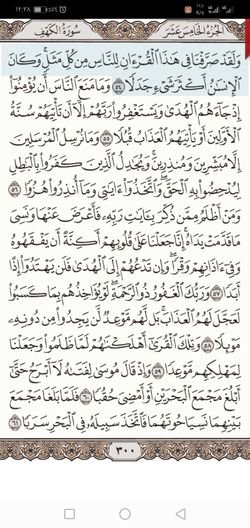 ١٢:٣٨
سُورَةُ الكَهْفِ
الجُزْءُ الخَامِسَ عَشَرَ
وَلَقَدْ صَرَّفْنَا فِي هَٰذَا ٱلْقُرْءَانِ لِلنَّاسِ مِن كُلِّ مَثَلٍ ۚ وَكَانَ
ٱلْإِنسَٰنُ أَكْثَرَ شَىْءٍ جَدَلًا ٥٤ وَمَا مَنَعَ ٱلنَّاسَ أَن يُؤْمِنُوٓا۟
إِذْ جَآءَهُمُ ٱلْهُدَىٰ وَيَسْتَغْفِرُوا۟ رَبَّهُمْ إِلَّآ أَن تَأْتِيَهُمْ سُنَّةُ
ٱلْأَوَّلِينَ أَوْ يَأْتِيَهُمُ ٱلْعَذَابُ قُبُلًا ٥٥ وَمَا نُرْسِلُ ٱلْمُرْسَلِينَ
إِلَّا مُبَشِّرِينَ وَمُنذِرِينَ ۚ وَيُجَٰدِلُ ٱلَّذِينَ كَفَرُوا۟ بِٱلْبَٰطِلِ
لِيُدْحِضُوا۟ بِهِ ٱلْحَقَّ ۖ وَٱتَّخَذُوٓا۟ ءَايَٰتِى وَمَآ أُنذِرُوا۟ هُزُوًا ٥٦
وَمَنْ أَظْلَمُ مِمَّن ذُكِّرَ بِـَٔايَٰتِ رَبِّهِۦ فَأَعْرَضَ عَنْهَا وَنَسِىَ
مَا قَدَّمَتْ يَدَاهُ ۚ إِنَّا جَعَلْنَا عَلَىٰ قُلُوبِهِمْ أَكِنَّةً أَن يَفْقَهُوهُ
وَفِىٓ ءَاذَانِهِمْ وَقْرًا ۖ وَإِن تَدْعُهُمْ إِلَى ٱلْهُدَىٰ فَلَن يَهْتَدُوٓا۟ إِذًا
أَبَدًا ٥٧ وَرَبُّكَ ٱلْغَفُورُ ذُو ٱلرَّحْمَةِ ۖ لَوْ يُؤَاخِذُهُم بِمَا كَسَبُوا۟
لَعَجَّلَ لَهُمُ ٱلْعَذَابَ ۚ بَل لَّهُم مَّوْعِدٌ لَّن يَجِدُوا۟ مِن دُونِهِۦ
مَوْئِلًا ٥٨ وَتِلْكَ ٱلْقُرَىٰٓ أَهْلَكْنَٰهُمْ لَمَّا ظَلَمُوا۟ وَجَعَلْنَا
لِمَهْلِكِهِم مَّوْعِدًا ٥٩ وَإِذْ قَالَ مُوسَىٰ لِفَتَىٰهُ لَآ أَبْرَحُ حَتَّىٰٓ
أَبْلُغَ مَجْمَعَ ٱلْبَحْرَيْنِ أَوْ أَمْضِىَ حُقُبًا ٦٠ فَلَمَّا بَلَغَا مَجْمَعَ
بَيْنِهِمَا نَسِيَا حُوتَهُمَا فَٱتَّخَذَ سَبِيلَهُۥ فِى ٱلْبَحْرِ سَرَبًا ٦١
٣٠٠